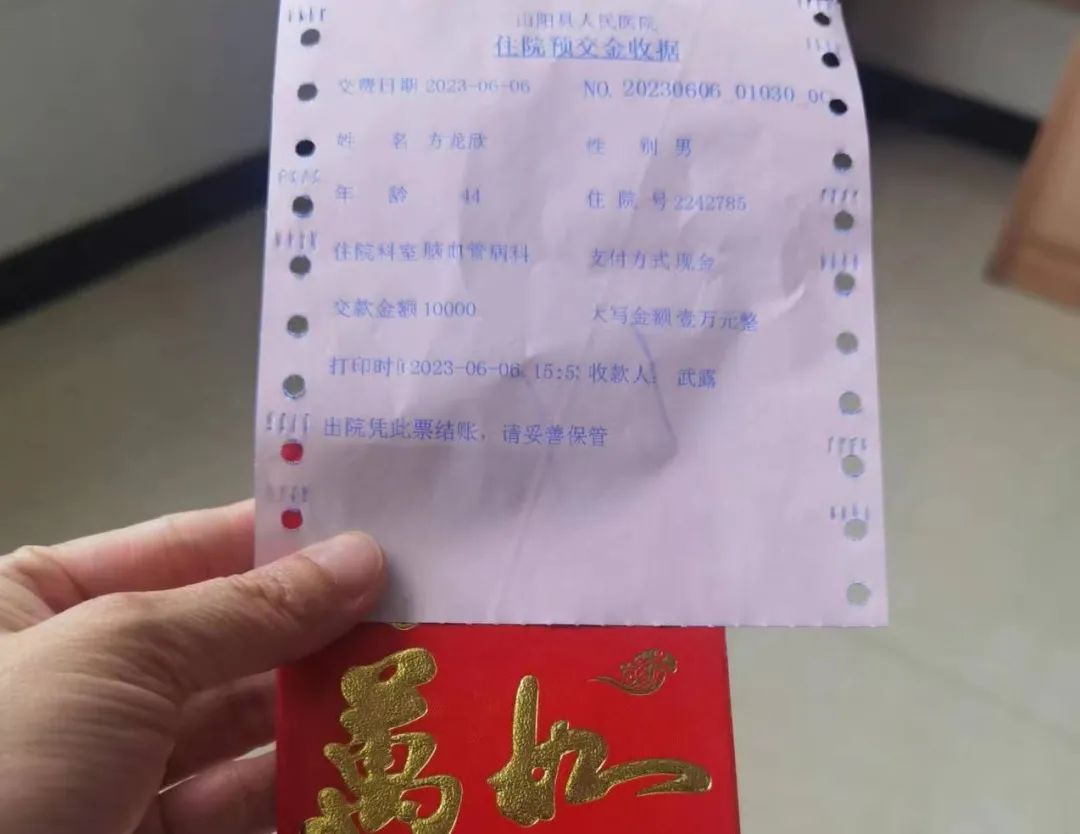 山阳县人民医院
住院预交金收据
交费日期 2023-06-06 NO. 20230606 01030
姓 名 方龙欣 性 别 男
年 龄 44 住 院 号 2242785
住院科室 脑血管病科 支付方式 现金
交款金额 10000 大写金额 壹万元整
打印时 2023-06-06 15:5 收款人: 武露
出院凭此票结账，请妥善保管
萬 如